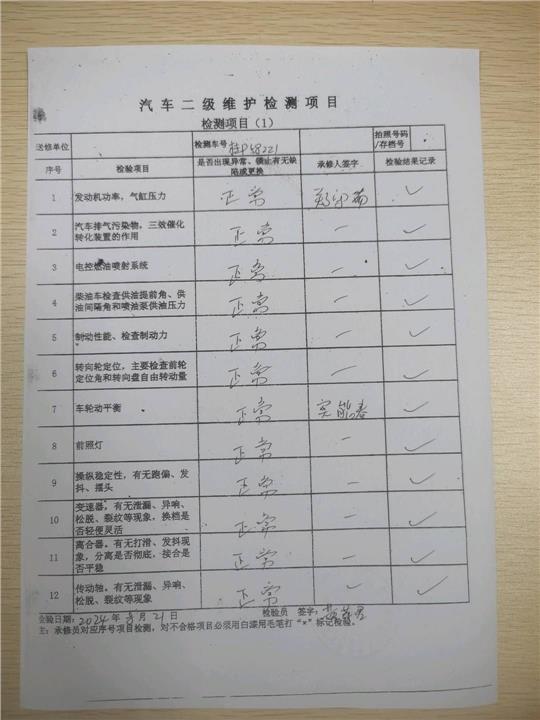 汽车二级维护检测项目
检测项目（1）
送修单位 检测车号 桂P58221 拍照号码/存档号
序号 检验项目 是否出现异常、锁止有无缺陷或更换 承修人签字 检验结果记录
1 发动机功率，气缸压力 正常 ✓
2 汽车排气污染物，三效催化转化装置的作用 正常 — ✓
3 电控燃油喷射系统 正常 — ✓
4 柴油车检查供油提前角、供油间隔角和喷油泵供油压力 正常 — ✓
5 制动性能、检查制动力 正常 — ✓
6 转向轮定位，主要检查前轮定位角和转向盘自由转动量 正常 — ✓
7 车轮动平衡 正常 ✓
8 前照灯 正常 — ✓
9 操纵稳定性，有无跑偏、发抖、摆头 正常 — ✓
10 变速器，有无泄漏、异响、松脱、裂纹等现象，换档是否轻便灵活 正常 — ✓
11 离合器，有无打滑、发抖现象，分离是否彻底，接合是否平稳 正常 — ✓
12 传动轴，有无泄漏、异响、松脱、裂纹等现象 正常 — ✓
检验日期：2024年 月21日 检验员 签字：
主：承修员对应序号项目检测，对不合格项目必须用白漆用毛笔打“×”标记检验。